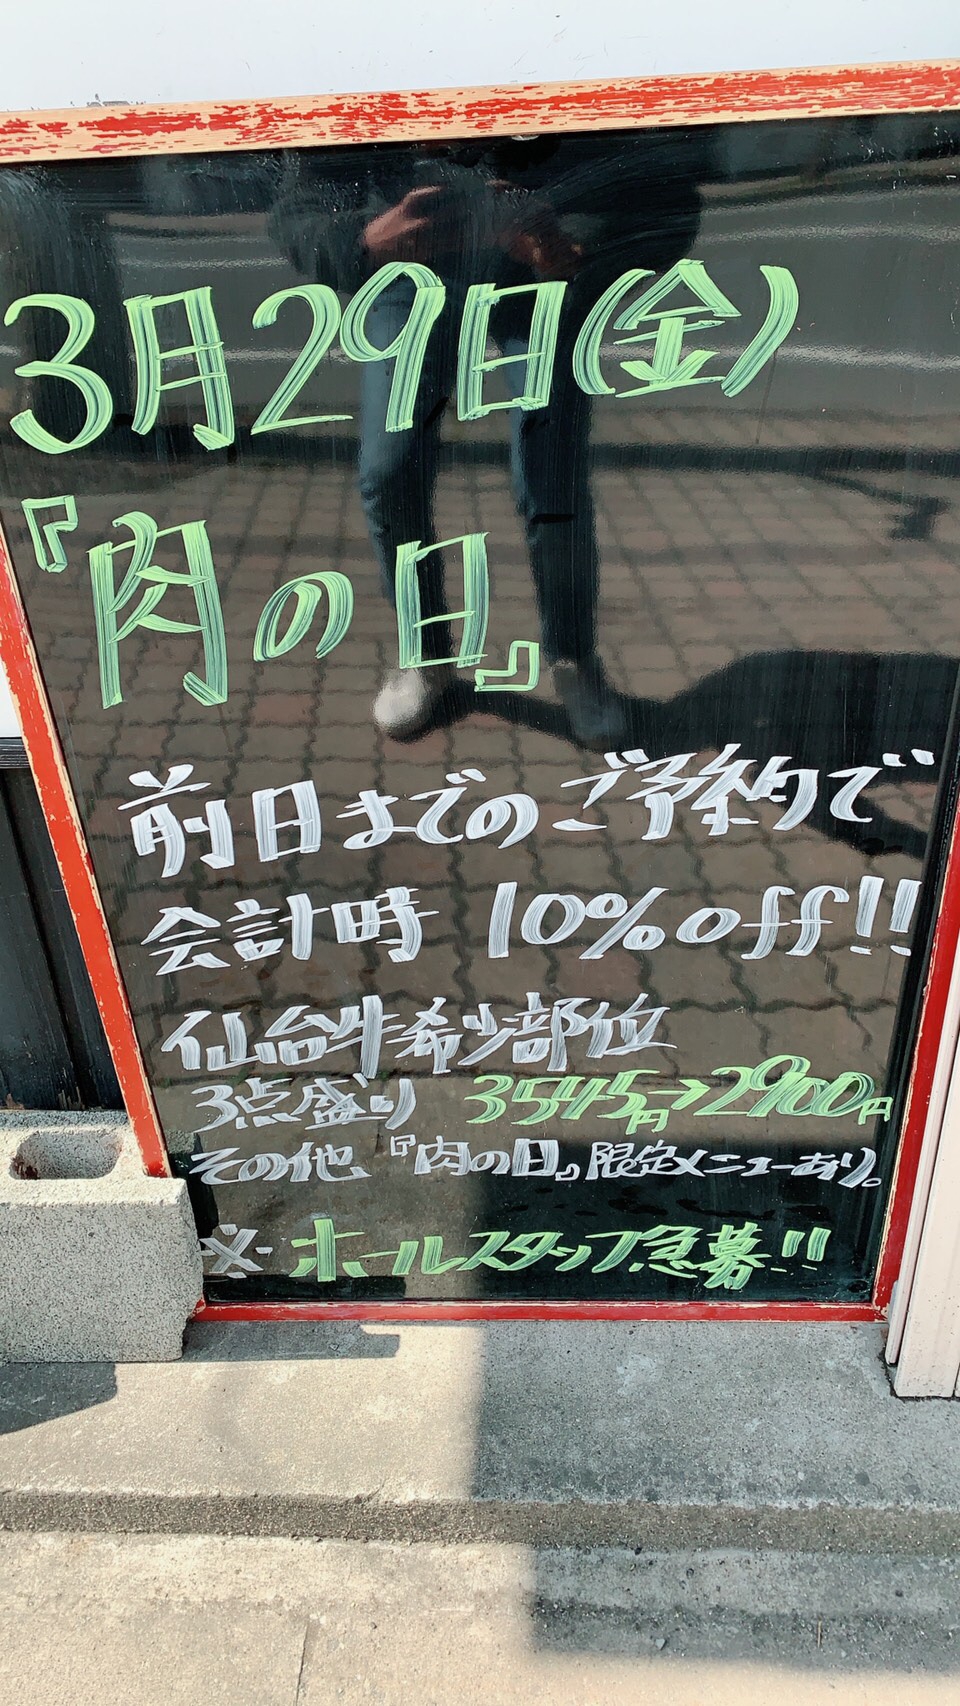 3月29日(金)
『肉の日』
前日までのご予約で
会計時 10%off!!
仙台牛希少部位
3点盛り 3545円→2900円
その他『肉の日』限定メニューあり。
※ホールスタッフ急募!!